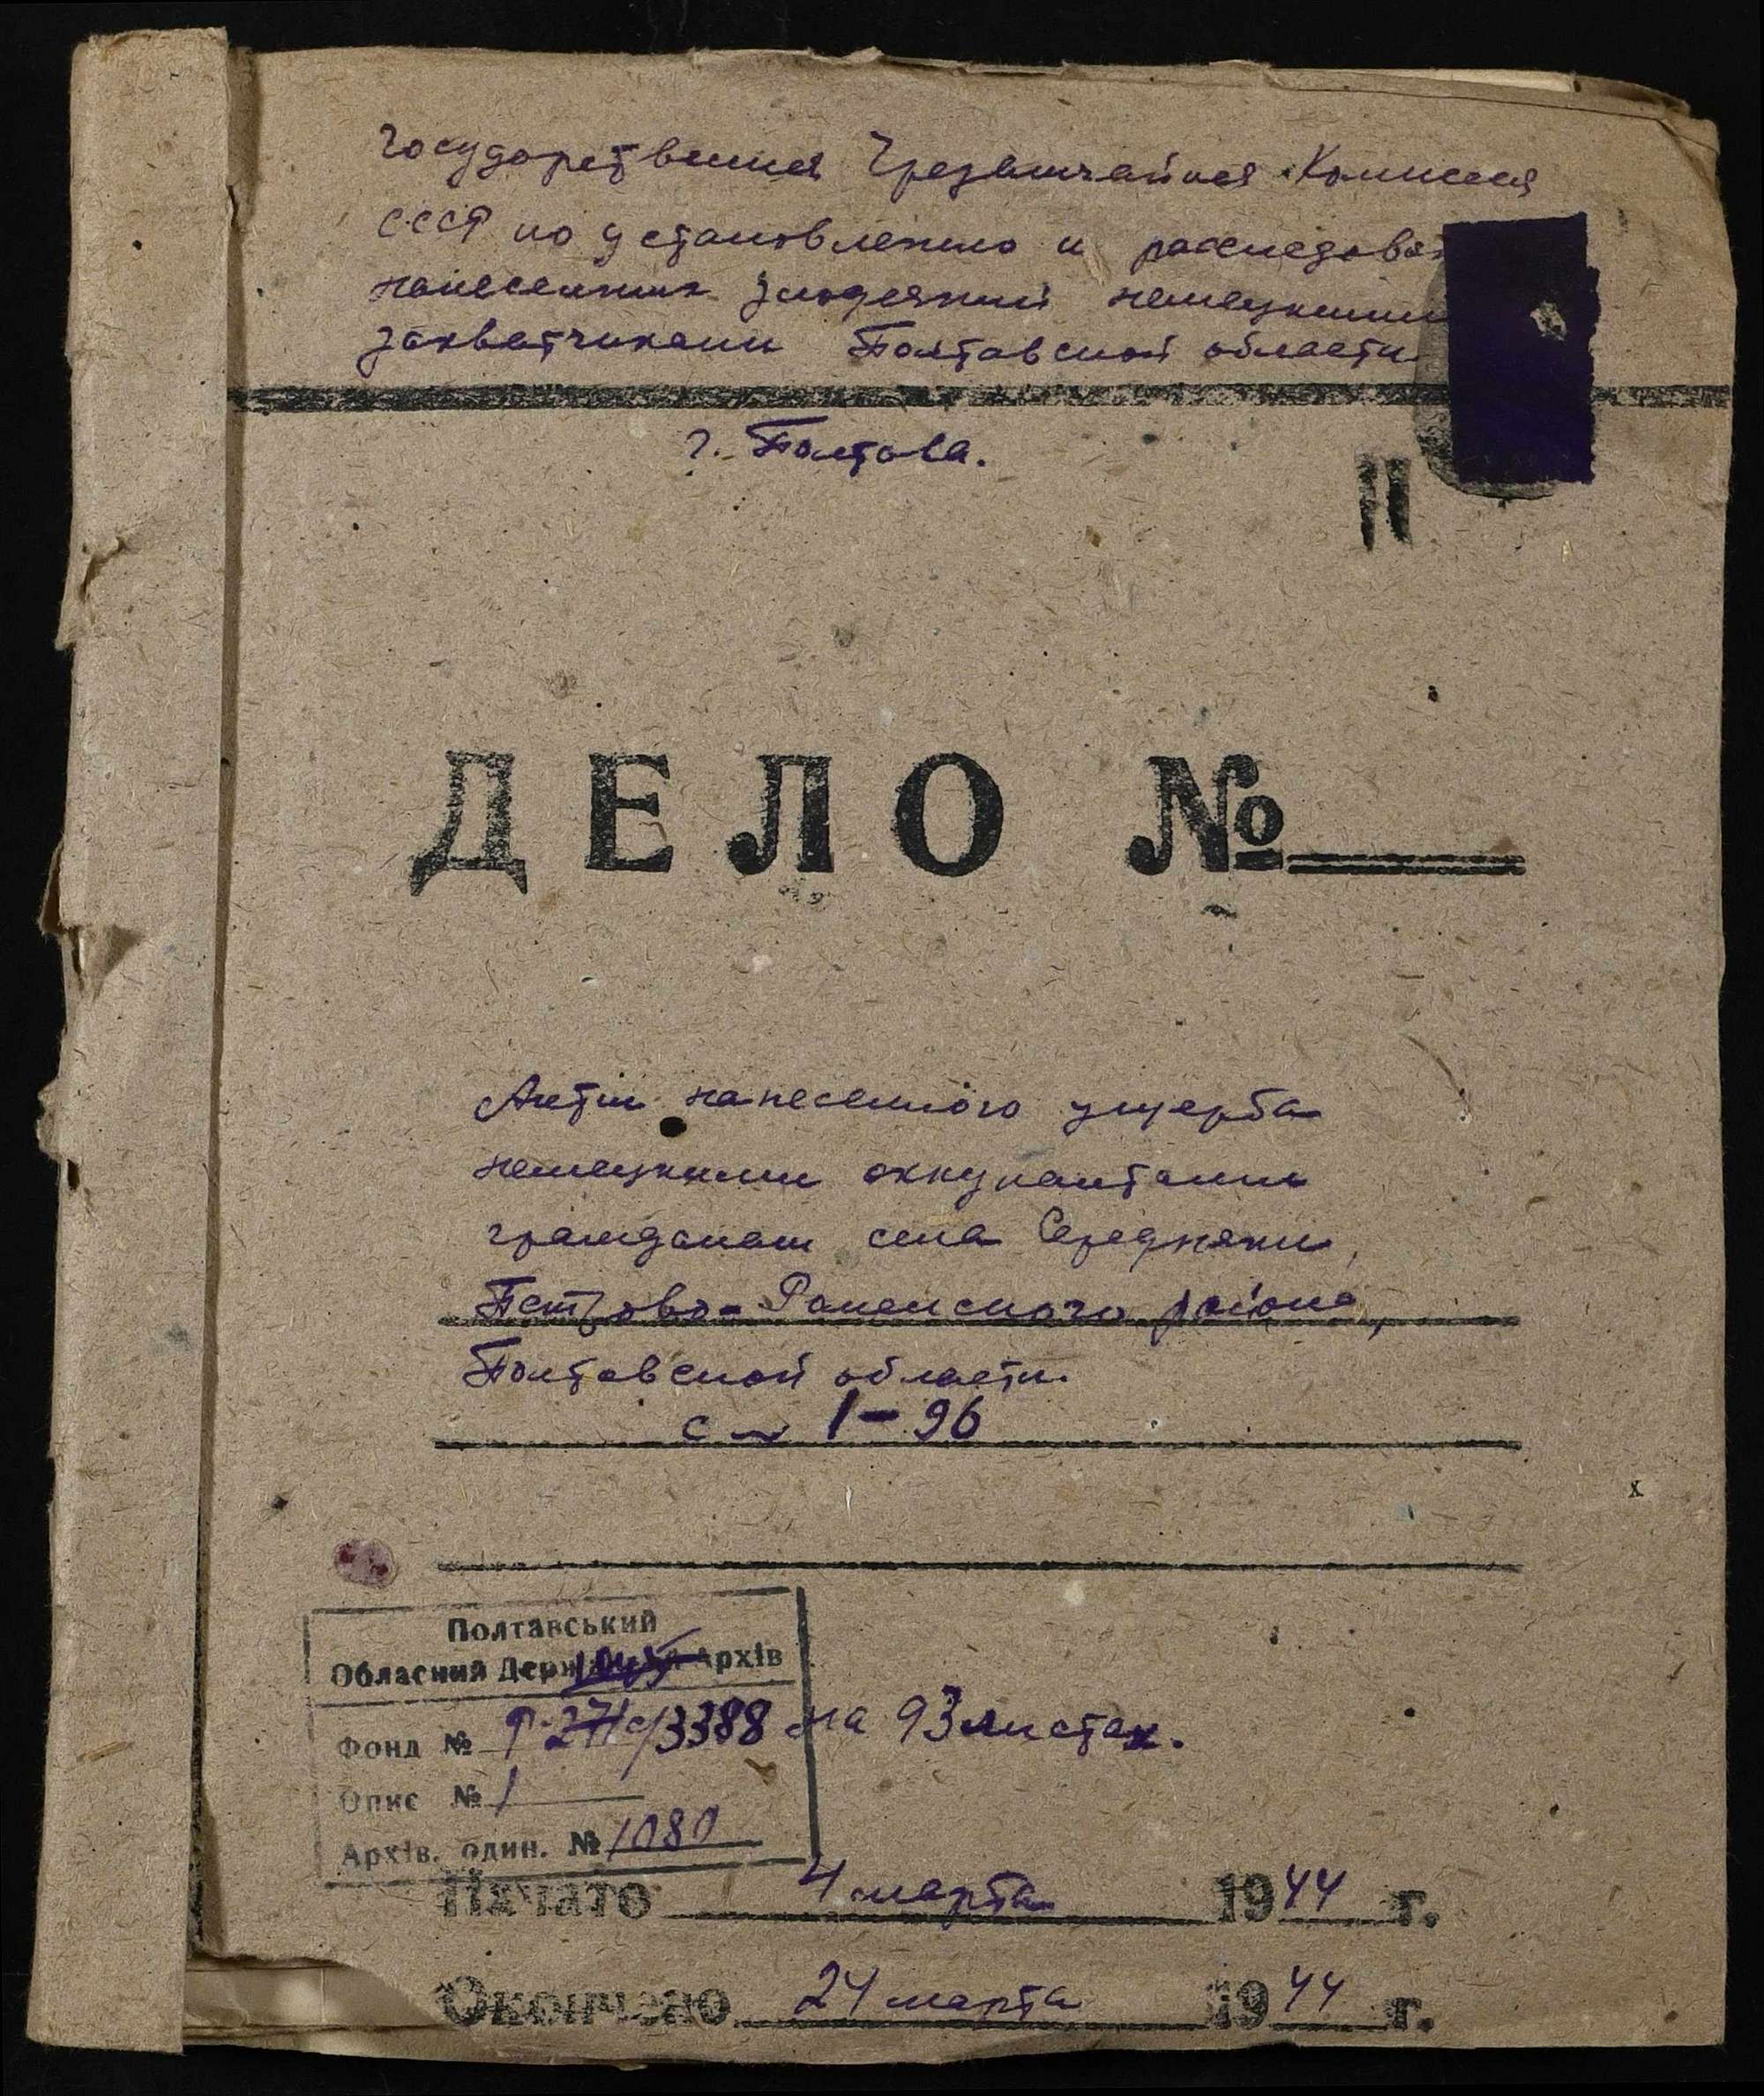 Государственная Чрезвычайная Комиссия
СССР по установлению и расследова
нанесенных злодеяний немецкими
захватчиками Полтавской области
г. Полтава.
ДЕЛО №
Акты нанесенного ущерба
немецкими оккупантами
гражданам села Середняки,
Петрово-Роменского района,
Полтавской области.
с № 1-96
Полтавський
Обласний Державний Архів
Фонд № Р-3388 на 93 листах.
Опис № 1
Архів. один. № 1080
Начато 4 марта 1944 г.
Окончено 24 марта 1944 г.